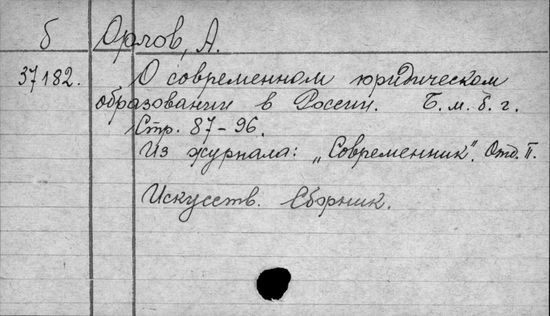 б Орлов, А.
37182. О современном юридическом
образовании в России. Б. м. б. г.
Стр. 87-96.
Из журнала: „Современник". Отд. II.
Искусств. Сборник.